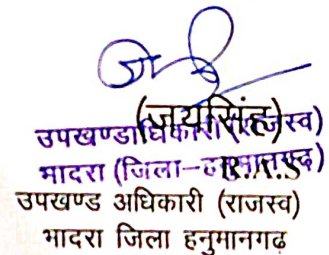 (जयसिंह)
उपखण्डाधिकारी (राजस्व)
भादरा (जिला-हनुमानगढ़)
R.A.S
उपखण्ड अधिकारी (राजस्व)
भादरा जिला हनुमानगढ़